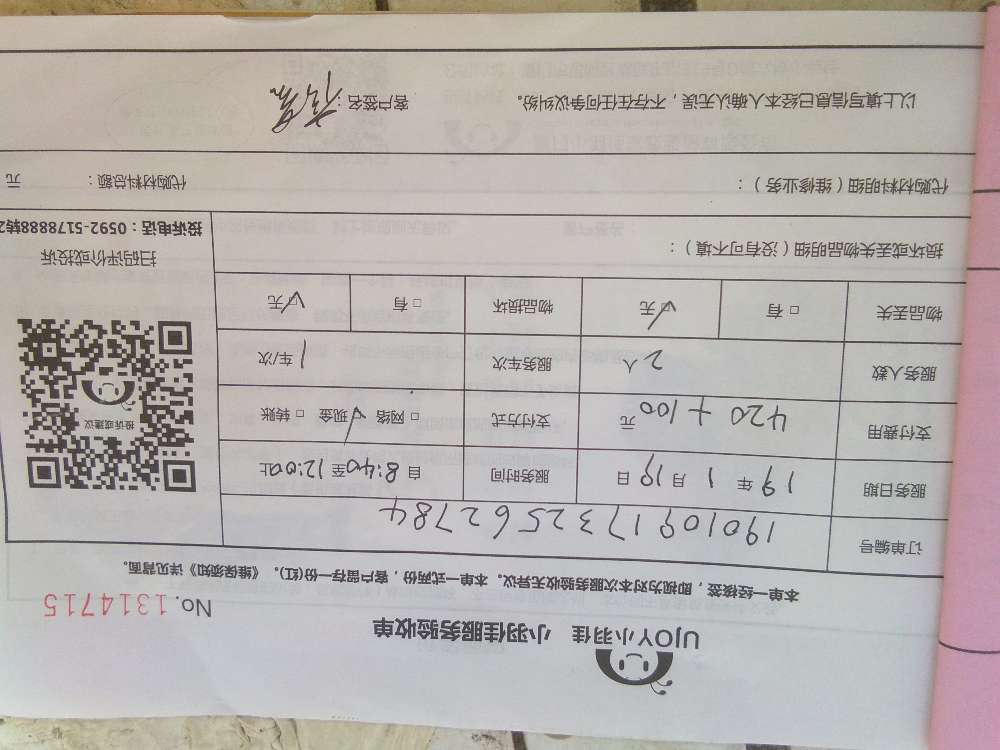 UJOY小羽佳 小羽佳服务验收单
No. 1314715
本单一经核签，即视为对本次服务验收无异议。本单一式两份，客户留存一份(红)。《维保须知》详见背面。
订单编号 190109173256 2784
服务日期 19 年 1 月 19 日 服务时间 自 8:40 至 12:00 止
支付费用 420+100 元 支付方式 □ 网络 ☑ 现金 □ 转账
服务人数 2 人 服务车次 1 车/次
物品丢失 □ 有 ☑ 无 物品损坏 □ 有 ☑ 无
投诉或建议
扫码评价或投诉
投诉电话：0592-5178888转2
损坏或丢失物品明细（没有可不填）：
代购材料明细（维修业务）： 代购材料总额： 元
以上填写信息已经本人确认无误，不存在任何争议纠纷。 客户签名：